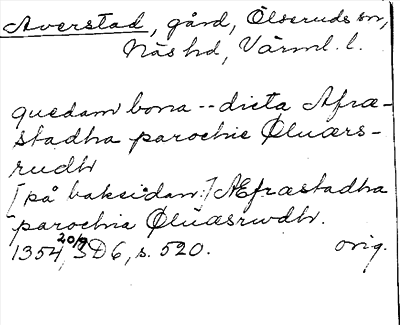 Averstad, gård, Ölseruds sn,
Näs hd, Värml. l.
quedam bona -- dicta Afræ-
stadha parochie Øluærs-
rudh
[på baksidan:] Æfræstadha
parochia Øluæsrwdh.
1354 20/9 SD6, s. 520. orig.